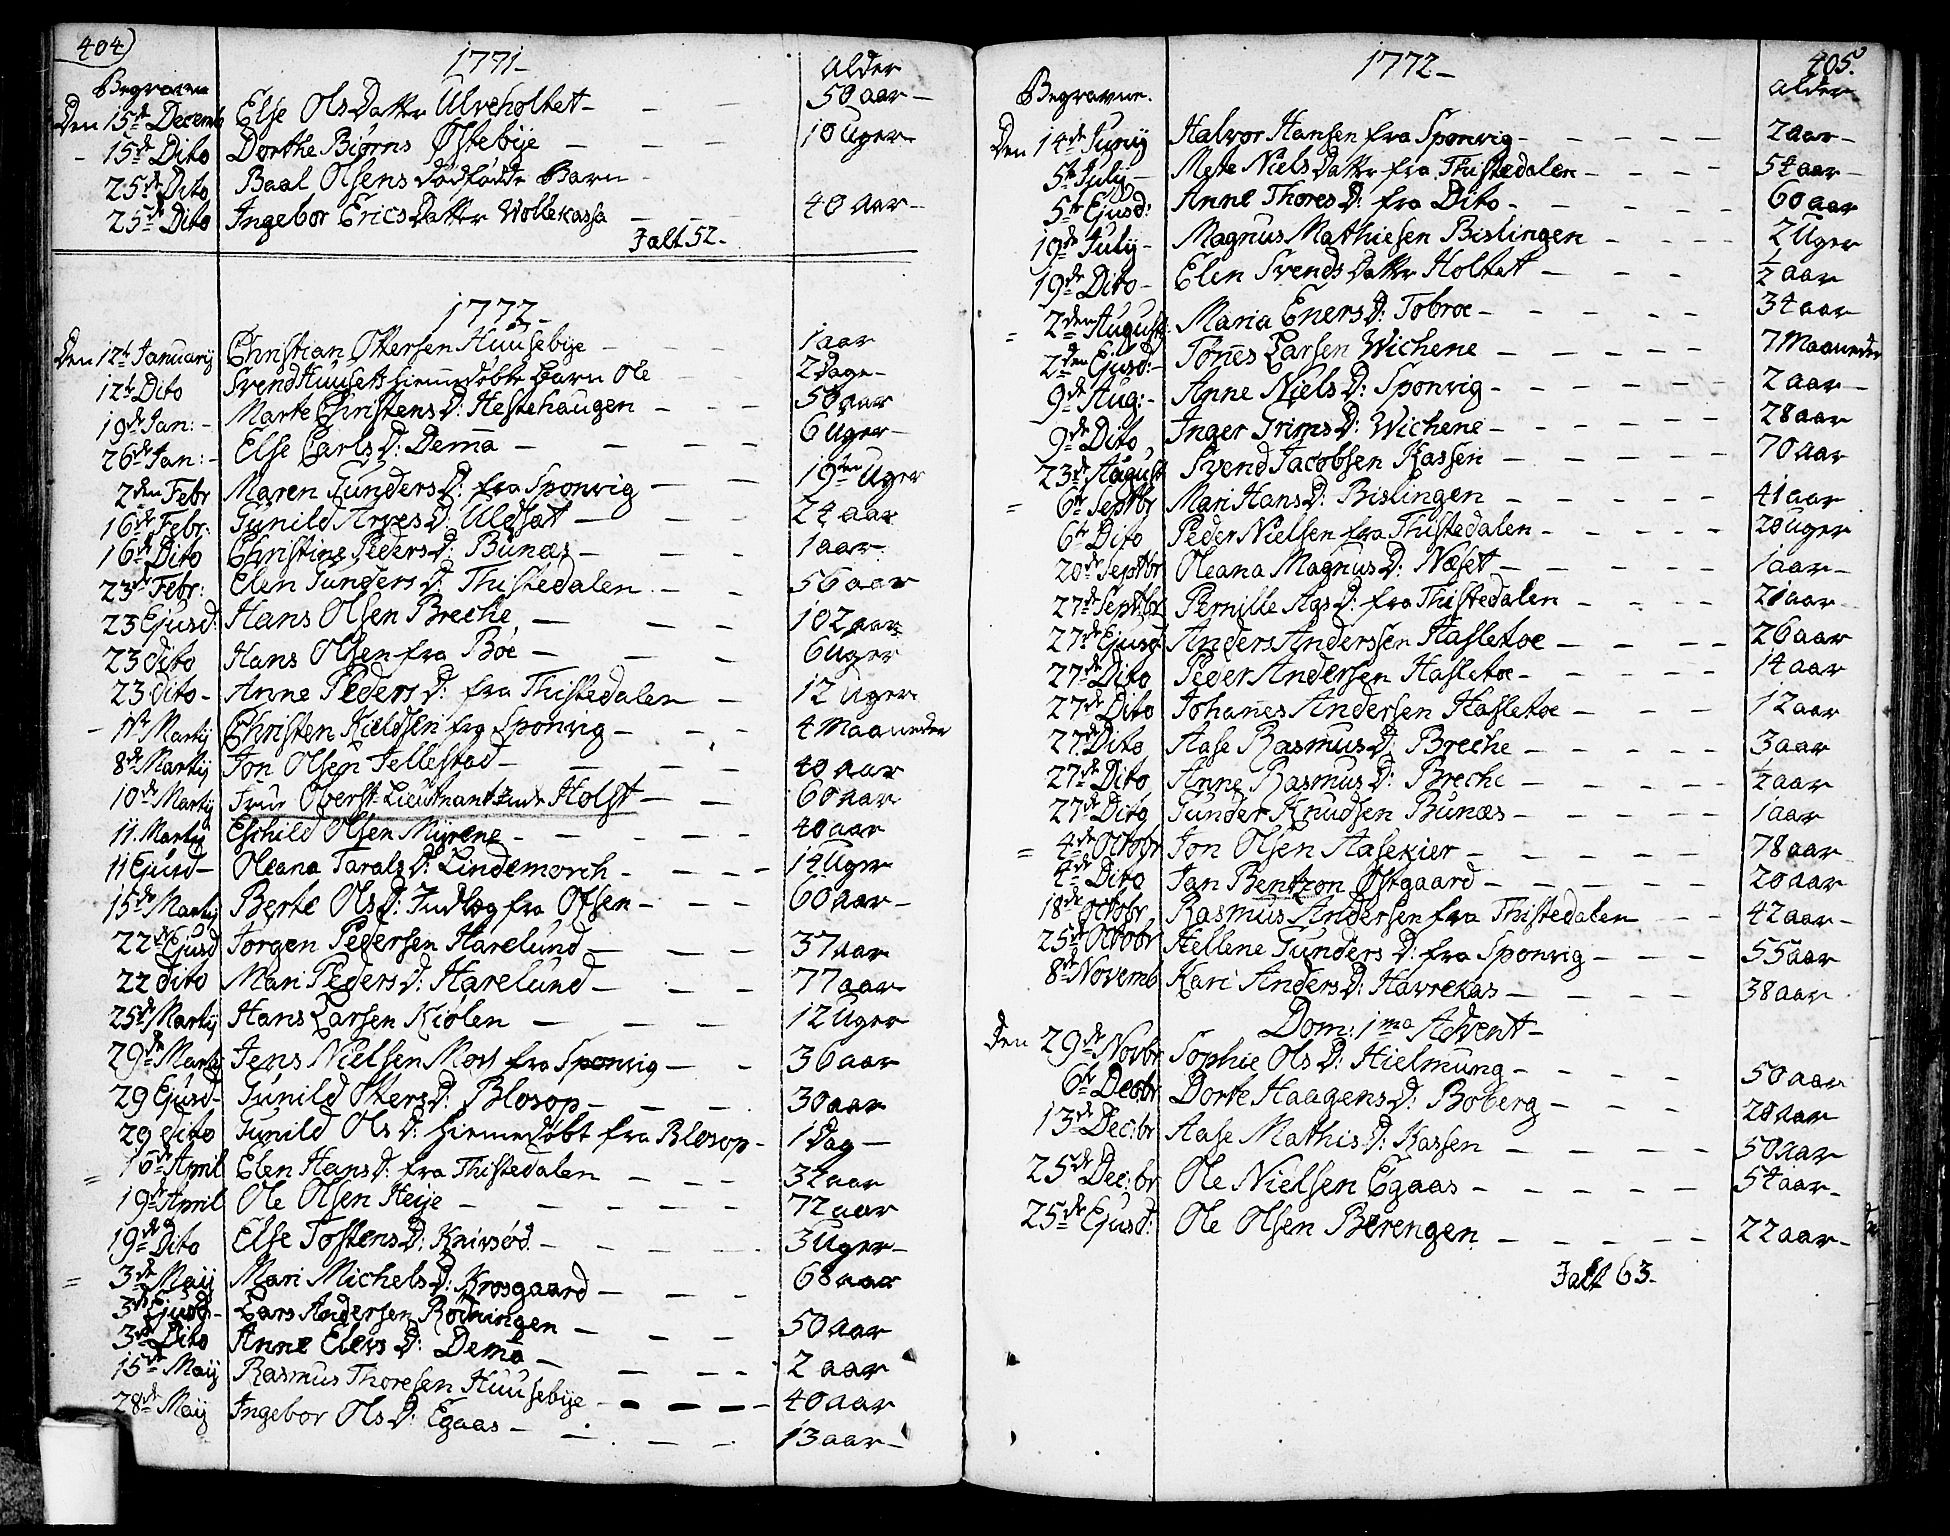 404)
1771-
Begravne
Alder
Den 15de Decemb Else OlsDatter Ulveholtet - 50 aar -
- 15de Dito Dorthe Biørns Østebÿe - 10 Uger
25de Dito Baal Olsens dødfødde Barn -
25de Dito Ingebor EricsDatter Wollekassa - 40 aar -
Ialt 52.
1772-
Den 12te Januarÿ Christian Ottersen Huusebÿe - 1 aar
12te Dito Svend Huusets hiemmedøbte Barn Ole 2 Dage -
19de Jan: - Marte Christens D: Hestehaugen - 50 aar
26de Jan: - Else Carls D: Dema - 6 Uger -
2den Febr Maren Gunders D: fra Sponvig - 19ten Uger
16de Febr: Gunild Arves D: Uldsat - 24 aar
16de Dito Christine Peders D: Bunæs - 1 aar
23de Febr: Elen Gunders D: Thistedalen - 56 aar
23 Ejusd: Hans Olsen Breche - 102 aar
23 dito Hans Olsen fra Bøe - 6 Uger
23 dito - Anne Peders D: fra Thistedalen - 12 Uger
- 1ste Martÿ Christen Kieldsen fra Sponvig - 4 Maaneder
8de Martÿ Jon Olsen Tellestad - 40 aar
10de Martÿ Frue Oberst-Lieutnantinde Holst - 60 aar
11. Martÿ Eschild Olsen Mÿrene - 40 aar
11 Ejusd - Oleana Tarals D: Lindemorch - 14 Uger
15de Martÿ Berte Ols D: Indlæg fra Ofsen - 60 aar -
22de Ejusd Jørgen Pedersen Harelund - 37 aar
22 dito Mari Peders D: Harelund - 77 aar
25de Martÿ Hans Larsen Kiølen - 12 Uger
29de Martÿ Jens Nielsen Moss fra Sponvig - 36 aar
29 Ejusd - Gunild Otters D: Blosop - 30 aar
29 dito Gunild Ols D: hiemmedøbt fra Blosop - 1 Dag -
= 16de April Elen Hans D: fra Thistedalen - 34 aar
19de April Ole Olsen Heÿe - 72 aar
19de Dito Else Tostens D: Knivsød - 3 Uger -
= 3de Maÿ Mari Michels D: Krosgaard - 68 aar
3de Ejusd - Lars Andersen Rødningen - 50 aar
3de Dito Anne Elevs D: Dema - 2 aar
15de Maÿ Rasmus Thoresen Huusebÿe - 40 aar
28de Maÿ Ingebor Ols D: Egaas - 13 aar -
405.
1772-
Begravne.
Alder
Den 14de Junÿ Halvor Hansen fra Sponvig - 2 aar -
5te Julÿ - Mette NielsDatter fra Thistedalen - 54 aar -
5te Ejusd: Anne Thores D: fra Dito - 60 aar
19de Julÿ - Magnus Mathiesen Bislingen - 2 Uger
19de Dito - Elen SvendsDatter Holtet - ½ aar
= 2den August: Maria Eners D: Tobroe - 34 aar
2den Ejusd: - Tønnes Larsen Wichene - 7 Maaneder
9de Aug: - Anne Niels D: Sponvig - 2 aar -
9de Dito Inger Grims D: Wichene - 28 aar
23de August Svend Jacobsen Kassen - 70 aar
= 6te Septbr Mari Hans D: Bislingen - 41 aar
6te Dito Peder Nielsen fra Thistedalen - 20 Uger
20de Septbr Oleana Magnus D: Næset - 1 aar -
27de Septbr Pernille Ags D: fra Thistedalen - 21 aar
27de Ejusd Anders Anderssen Hasletoe - 26 aar
27de Dito Peder Andersen Hasletoe - 14 aar
27de Dito Johanes Andersen Hasletoe - 12 aar
27de Dito Aase Rasmus D: Breche - 3 aar
27de Dito Anne Rasmus D: Breche - ½ aar
27de Dito Gunder Knudsen Bunæs - 1 aar
= 4de Octobr Jon Olsen Aasekier - 78 aar
4de Dito Jan Bentzon Østgaard - 20 aar
18de Octobr Rasmus Andersen fra Thistedalen - 42 aar -
25de Octobr Hellene Gunders D: fra Sponvig - 55 aar
8de Novemb Kari Anders D: Havrekas - 38 aar
Dom: 1ma Advent -
Den 29de Novbr Sophie Ols D: Hielmung - 50 aar
6te Decbr Dorte Haagens D: Boberg - 28 aar
13de Dec:br Aase Mathis D: Kassen - 50 aar
25de Dec:br Ole Nielsen Egaas - 54 aar -
25de Ejusd: Ole Olsen Berengen - 22 aar -
Ialt 63.